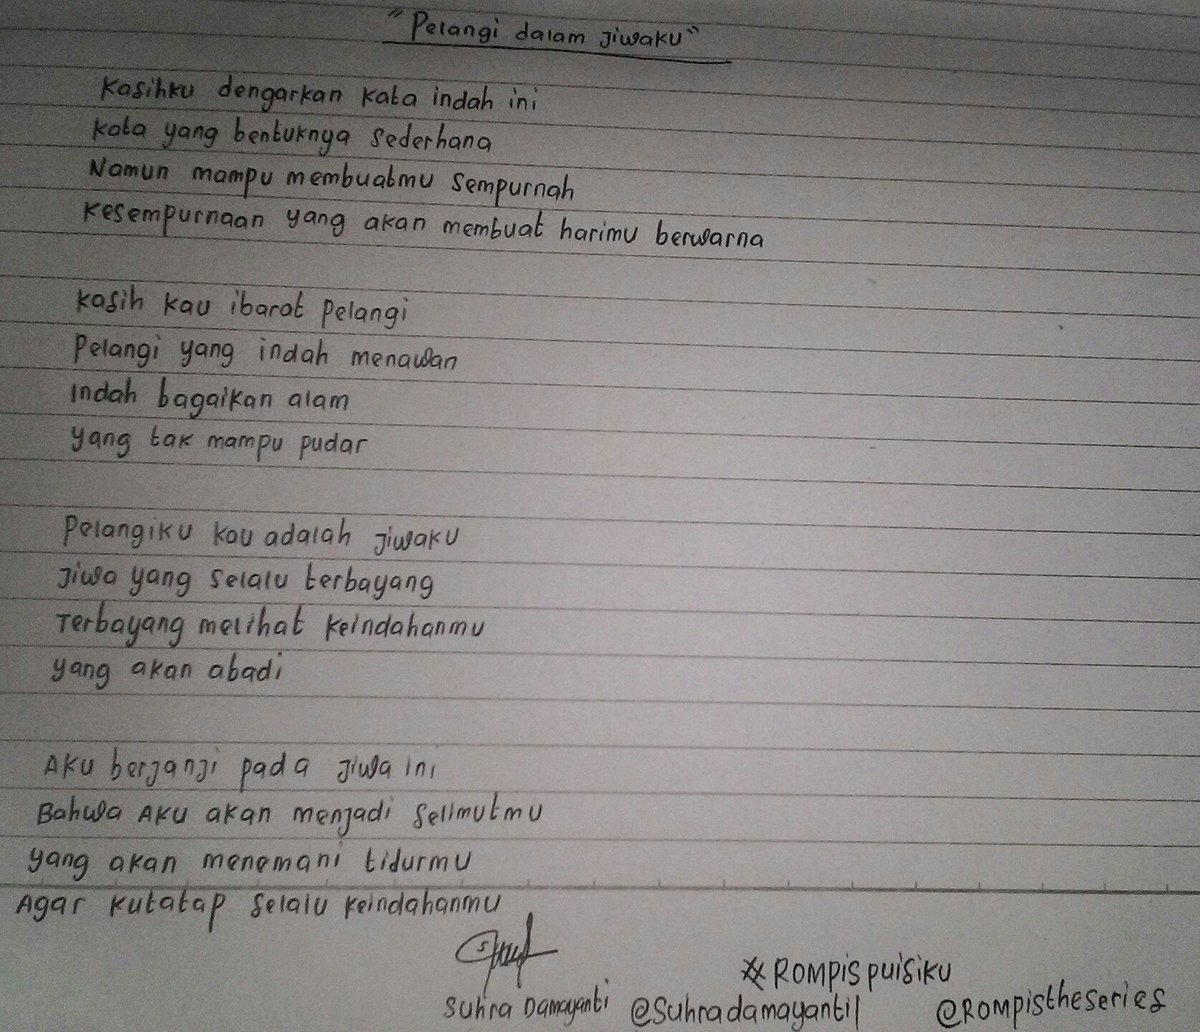 "Pelangi dalam jiwaku"
Kasihku dengarkan kata indah ini
Kata yang bentuknya sederhana
Namun mampu membuatmu sempurnah
Kesempurnaan yang akan membuat harimu berwarna
Kasih kau ibarat pelangi
Pelangi yang indah menawan
Indah bagaikan alam
yang tak mampu pudar
Pelangiku kau adalah jiwaku
Jiwa yang selalu terbayang
Terbayang melihat keindahanmu
yang akan abadi
Aku berjanji pada jiwa ini
Bahwa Aku akan menjadi selimutmu
yang akan menemani tidurmu
Agar kutatap selalu keindahanmu
#Rompispuisiku
Suhra Damayanti @Suhradamayanti1 @Rompistheseries